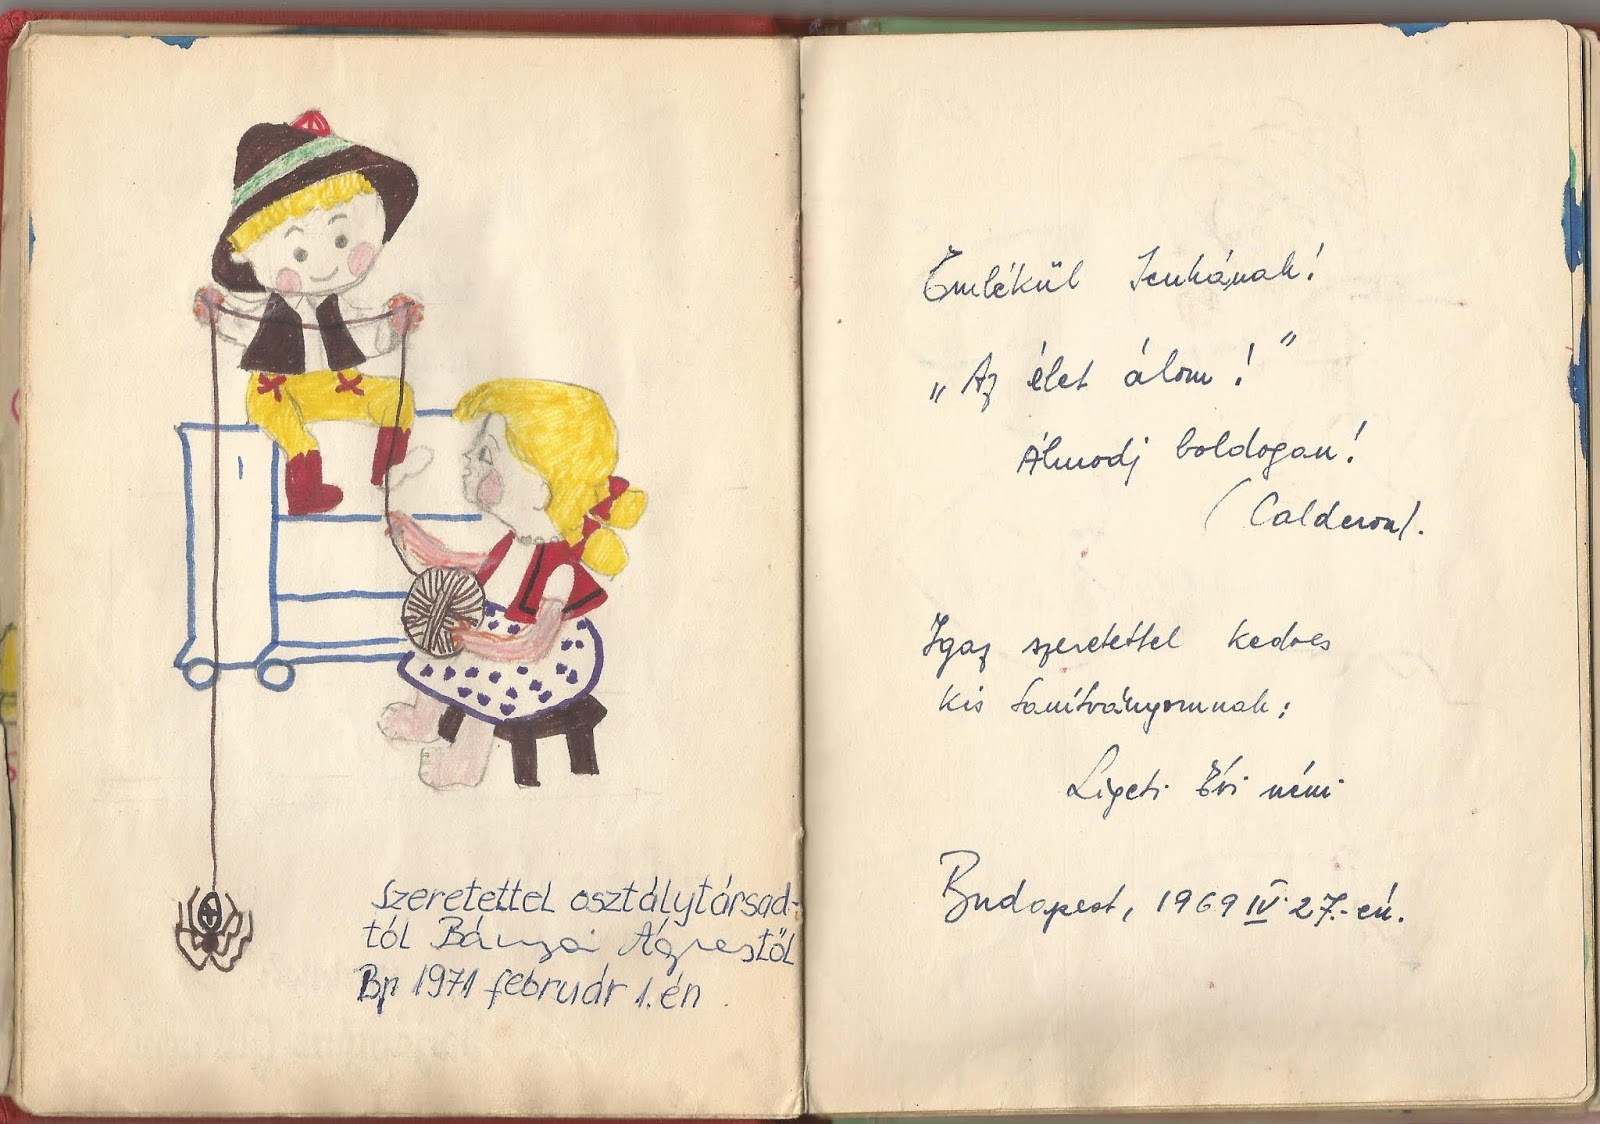 Szeretettel osztálytársad-
tól Bányai Ágnestől
Bp 1971 február 1.én
Emlékül Icukának!
„Az élet álom!"
Álmodj boldogan!
(Calderon).
Igaz szeretettel kedves
kis tanítványomnak:
Ligeti Évi néni
Budapest, 1969 IV. 27.-én.